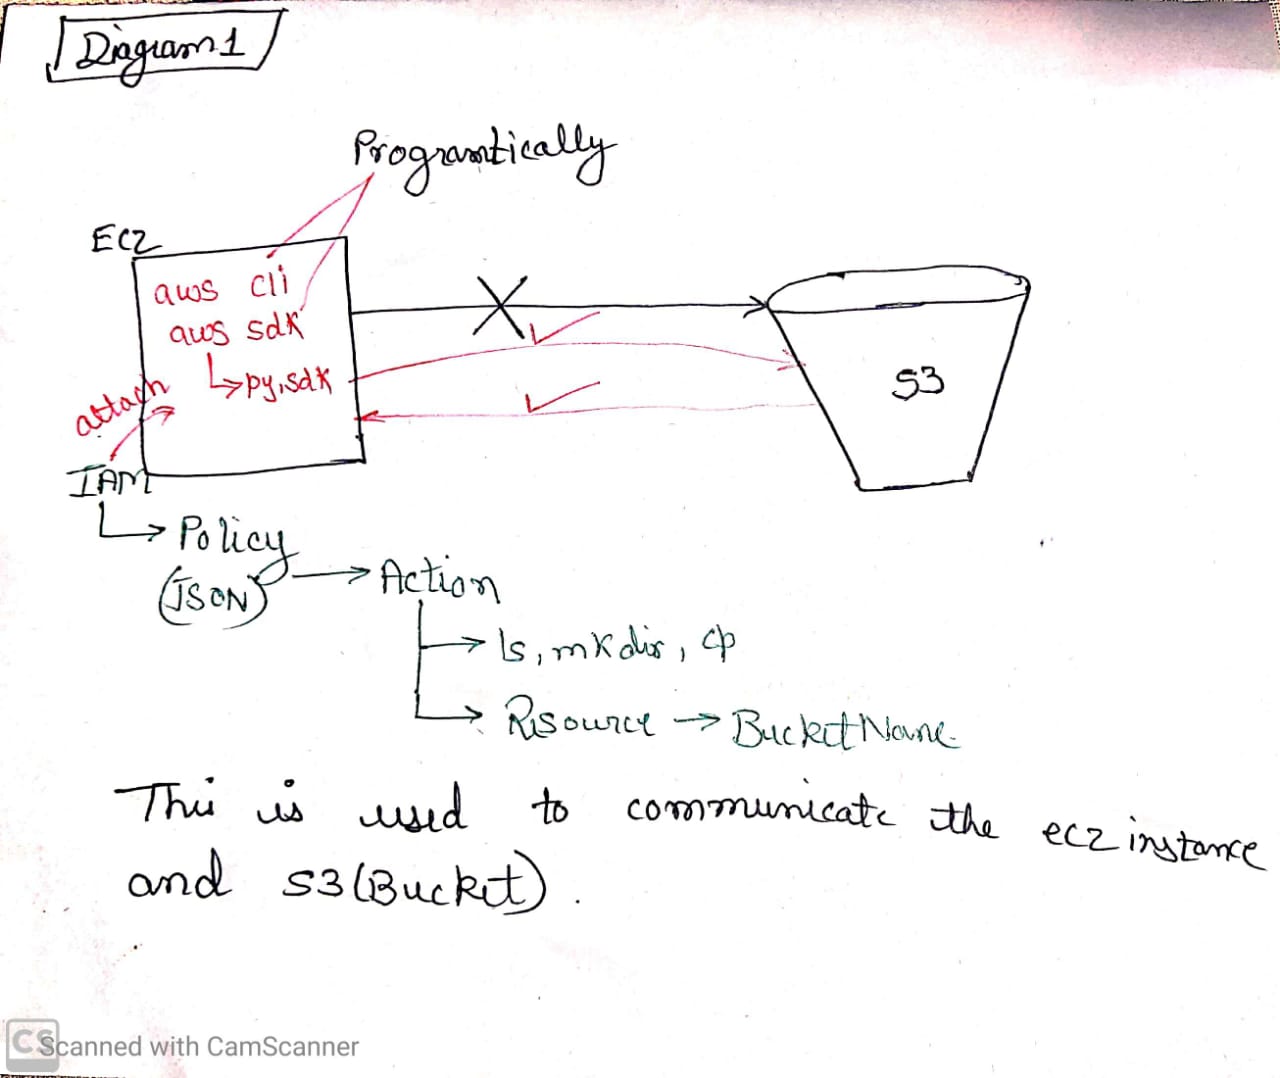 Diagram 1
Programtically
EC2
aws cli
aws sdk
py,sdk
attach
S3
IAM
Policy
(JSON)
Action
ls, mkdir, cp
Resource
BucketName
This is used to communicate the ec2 instance
and S3(Bucket).
CS
Scanned with CamScanner